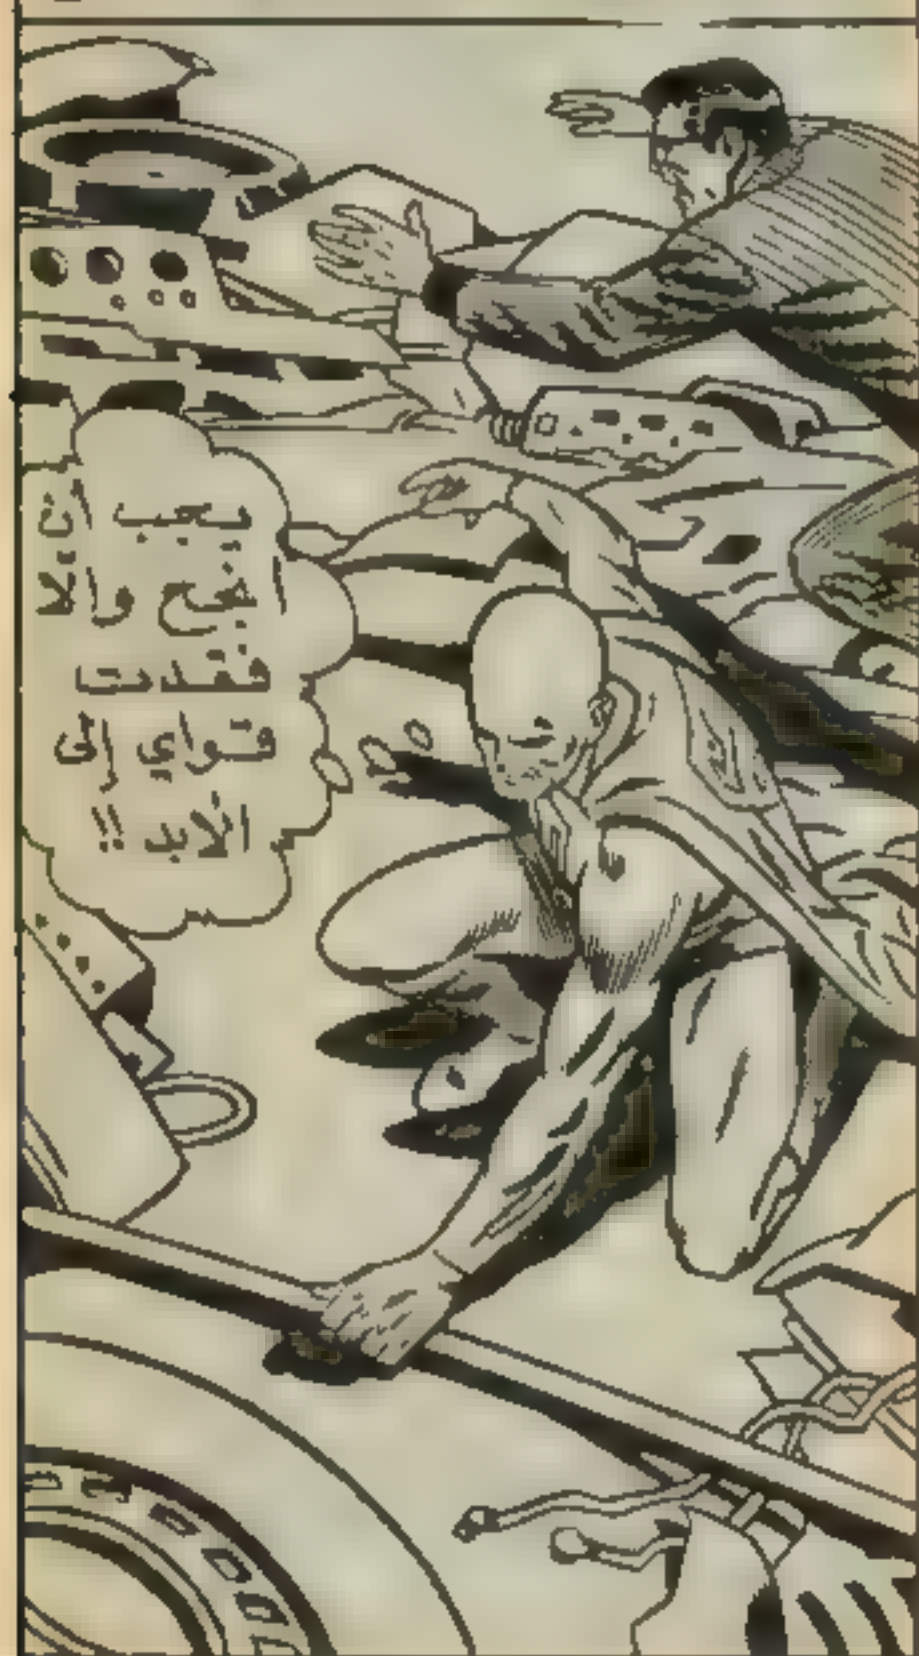 يجب أن
أنجح وإلا
فقدت
قواي إلى
الأبد !!